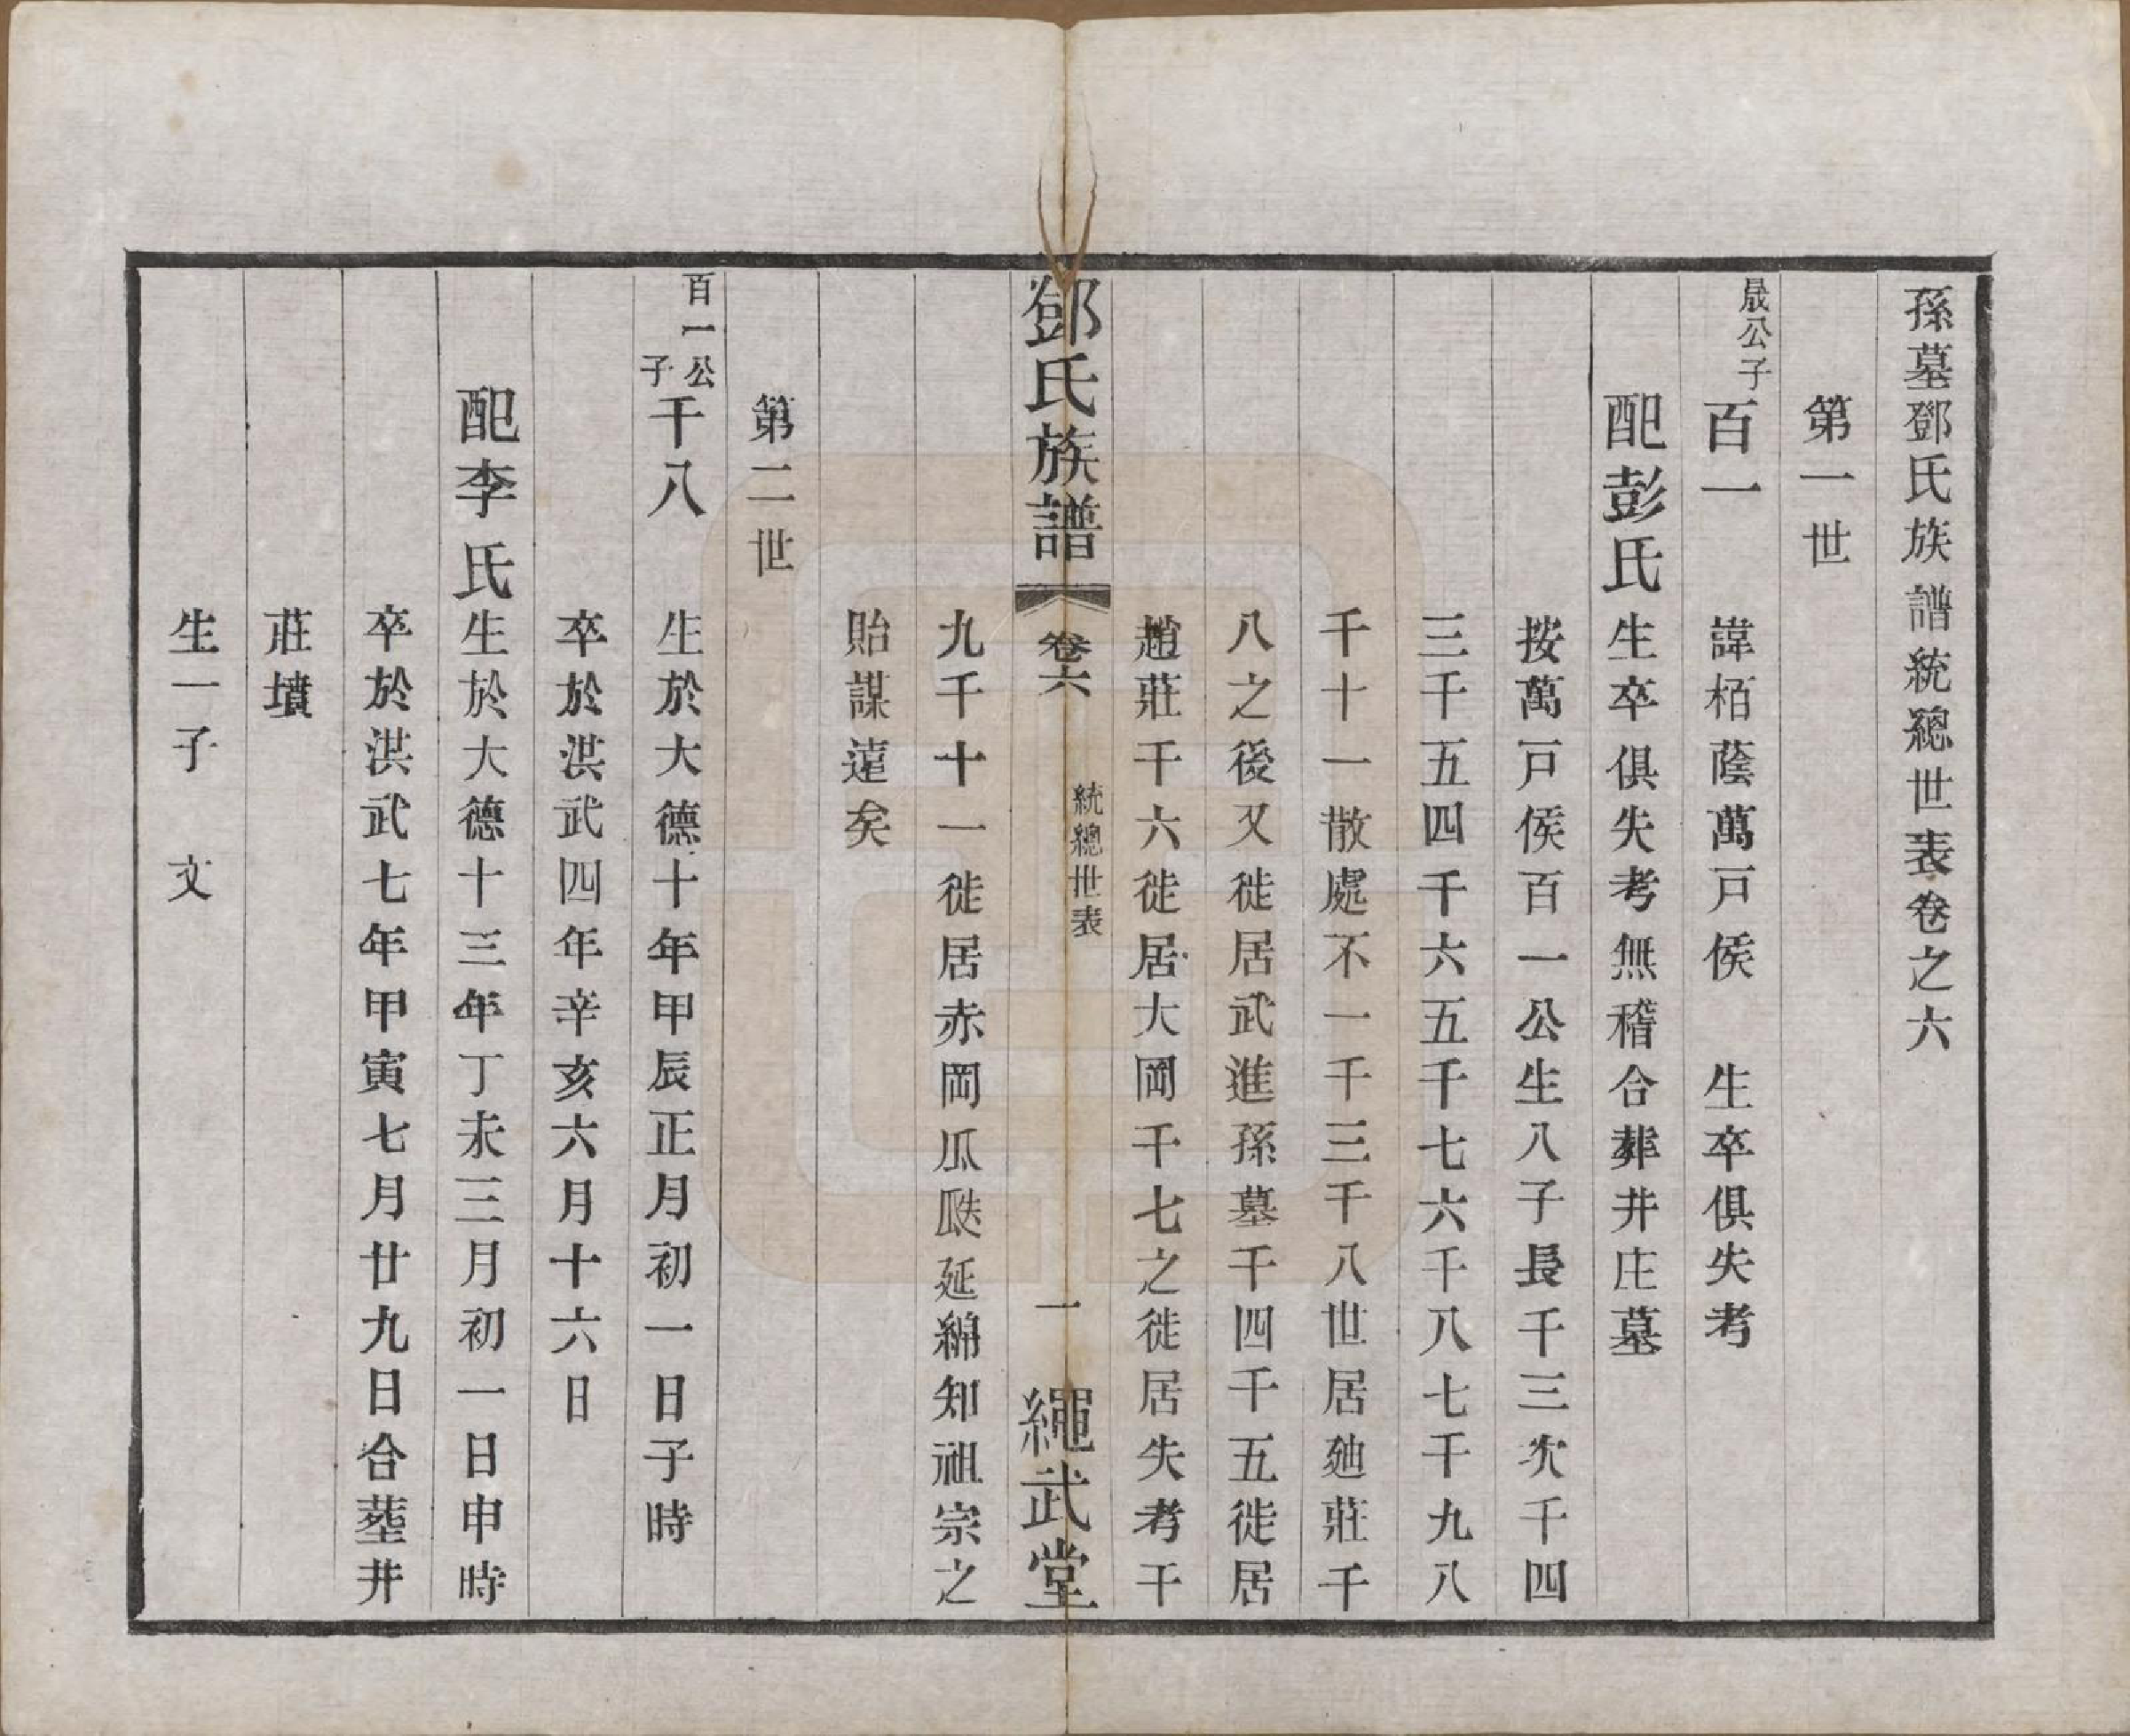 孫墓鄧氏族譜統總世表卷之六
第一世
晟公子百一 諱栢蔭萬戸侯 生卒俱失考
配彭氏生卒俱失考無稽合葬井庄墓
按萬戸侯百一公生八子長千三次千四
三千五四千六五千七六千八七千九八
千十一散處不一千三千八世居虵莊千
八之後又徙居武進孫墓千四千五徙居
趙莊千六徙居大岡千七之徙居失考千
鄧氏族譜 卷六 統總世表 一 繩武堂
九千十一徙居赤岡瓜瓞延綿知祖宗之
貽謀遠矣
第二世
百一公子千八 生於大德十年甲辰正月初一日子時
卒於洪武四年辛亥六月十六日
配李氏生於大德十三年丁未三月初一日申時
卒於洪武七年甲寅七月廿九日合塟井
莊墳
生一子 文